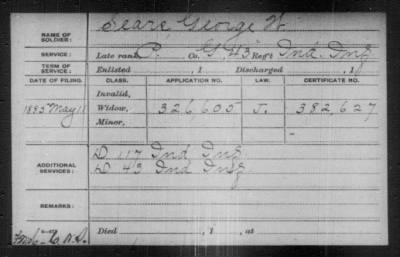 NAME OF SOLDIER: Sears, George W.
SERVICE: Late rank P. Co. G, 43 Reg't Ind. Inf
TERM OF SERVICE: Enlisted , 1 Discharged , 1
DATE OF FILING. CLASS. APPLICATION NO. LAW. CERTIFICATE NO.
Invalid,
1885 May 18 Widow, 326605 J. 382,627
Minor,
ADDITIONAL SERVICES: D 47 Ind Inf
D 43 Ind Inf
REMARKS:
Died , 1 , at